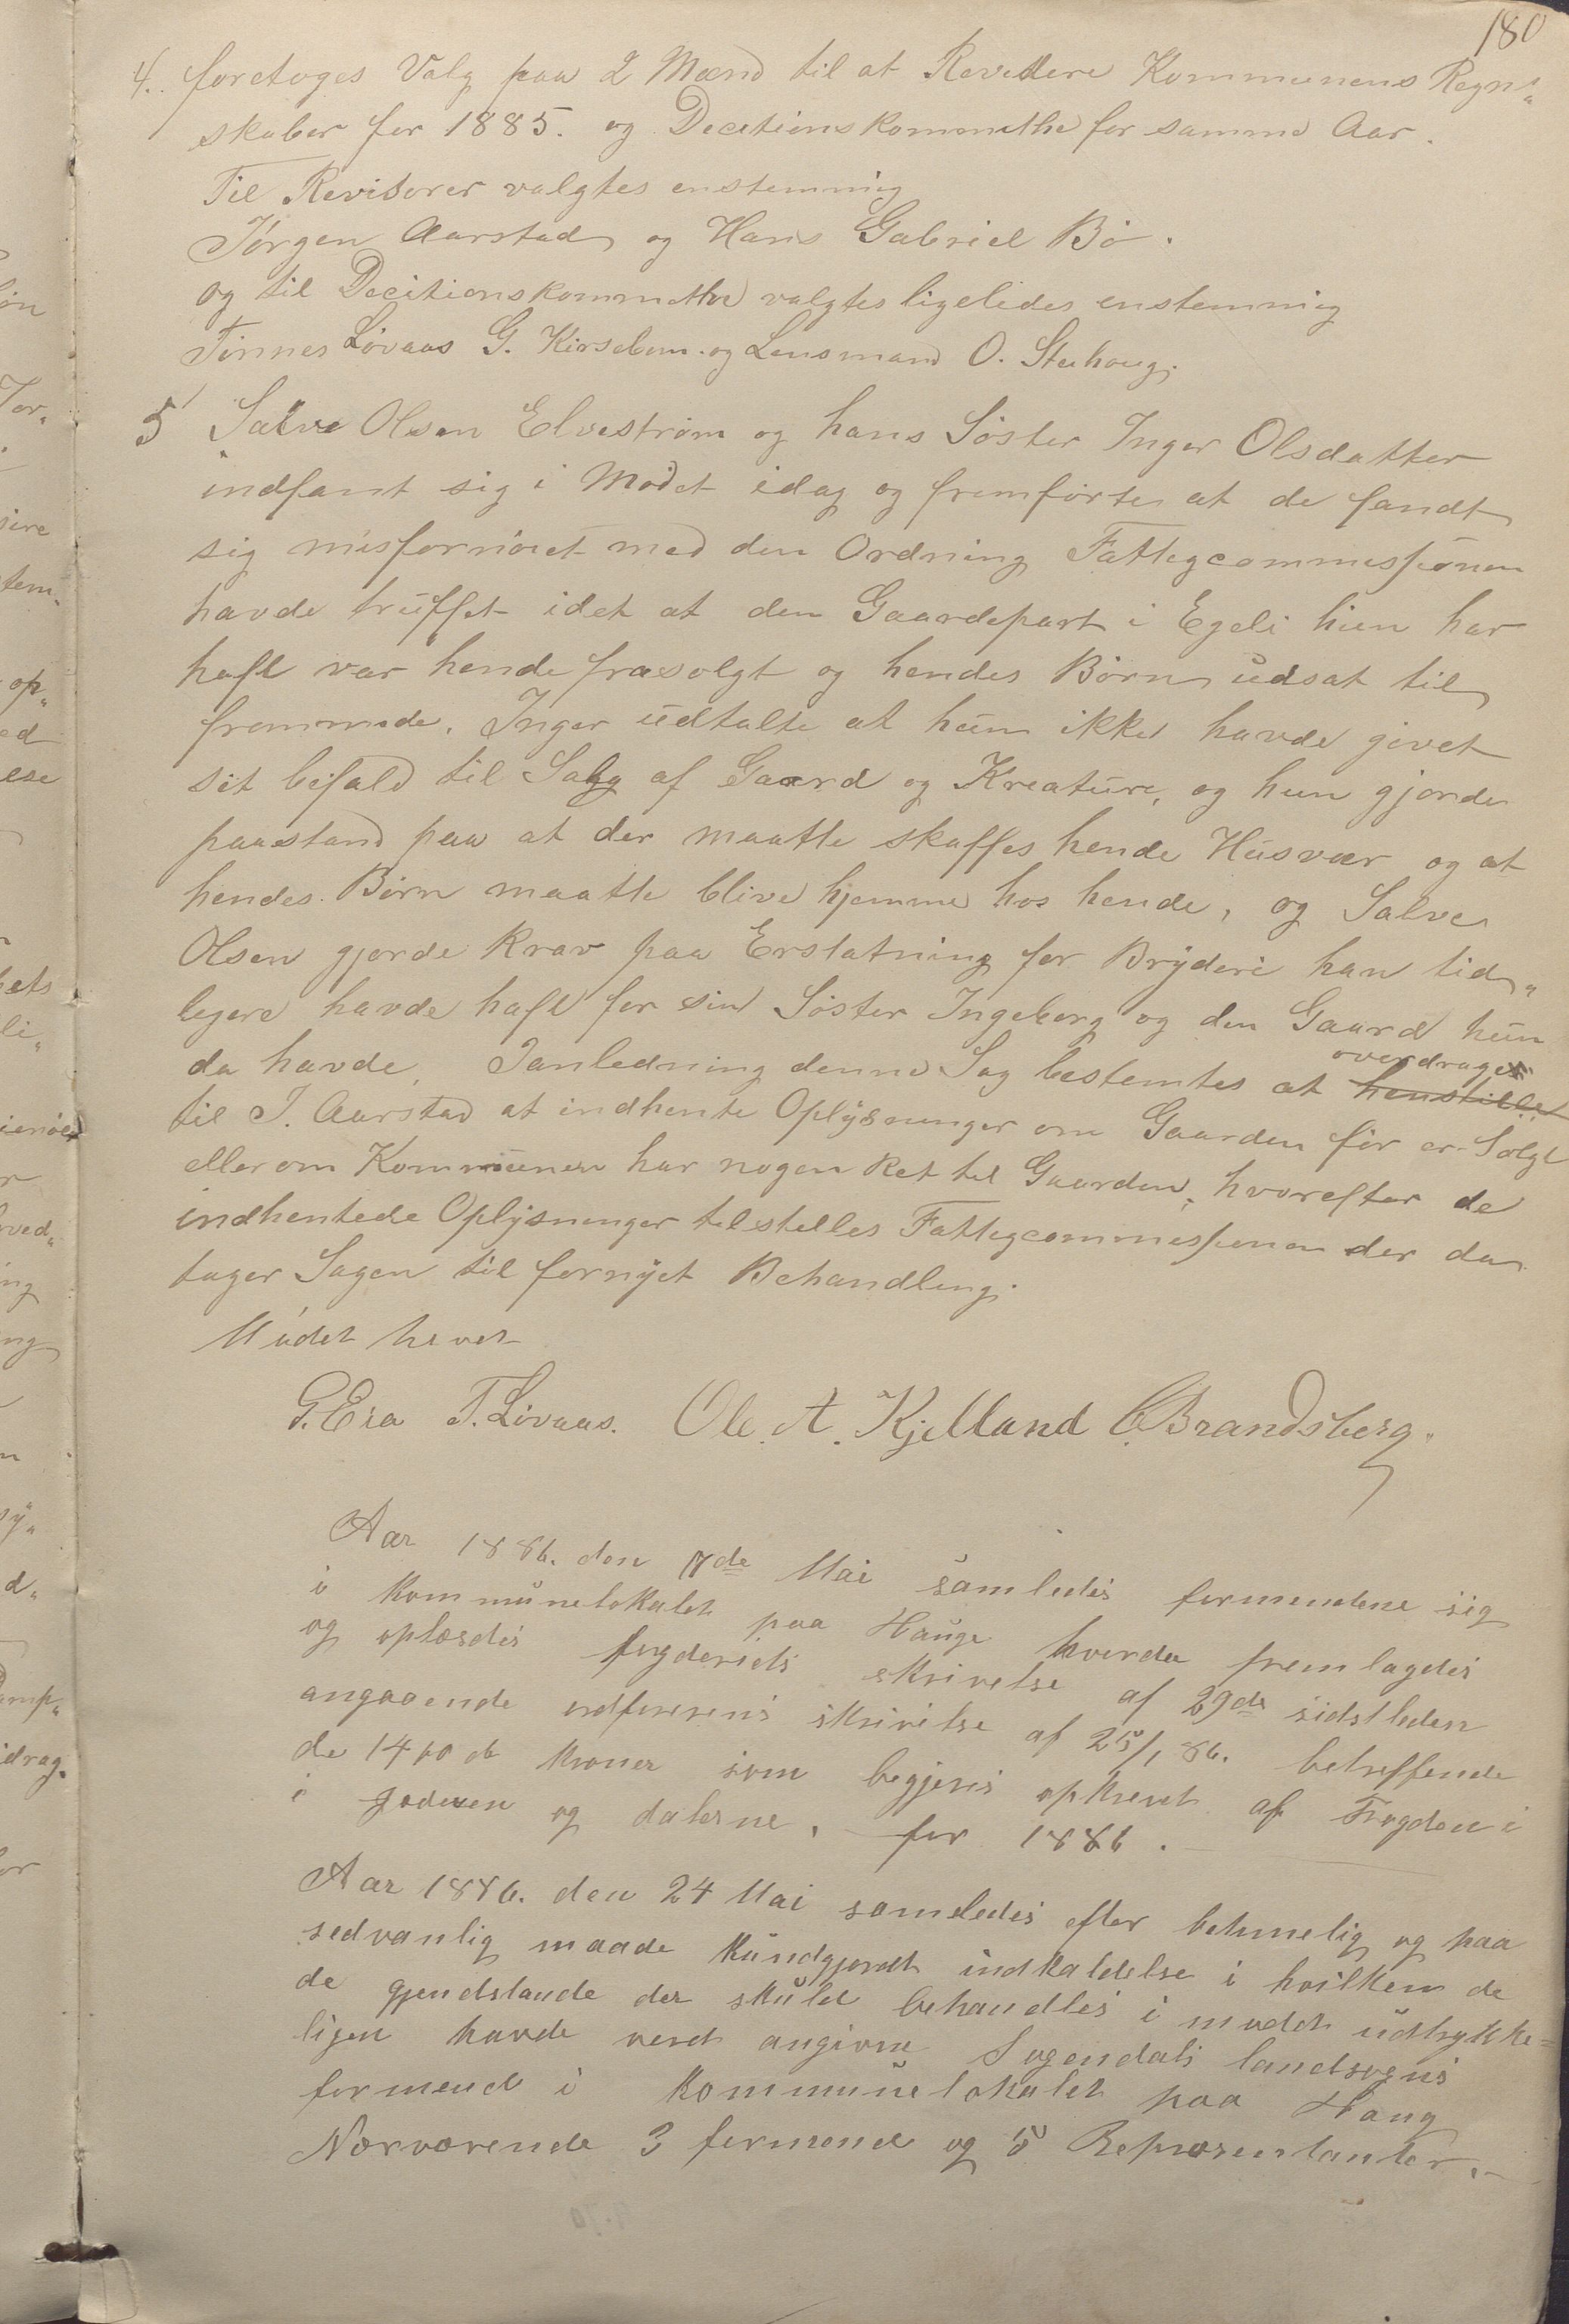 180
4. foretoges Valg paa 2 Mænd til at Revidere Kommunens Regn„
skaber for 1885. og Decitionskommithe for samme Aar.
Til Revisorer valgtes enstemmig
Jørgen Aarstad og Hans Gabriel Bø.
og til Decitionskommithe valgtes ligeledes enstemmig
Tønnes Løvaas G. Kirsebom. og Lensmand O. Stuhoug.
5 Salve Olsen Elvestrøm og hans Søster Inger Olsdatter
indfant sig i Mødet idag og fremførte at de fandt
sig misfornøiet med den Ordning Fattigcommissionen
havde truffet idet at den Gaardepart i Egeli hun har
haft var hende frasolgt og hendes Børn udsat til
fremmede. Inger udtalte at hun ikke havde givet
sit bifald til Salg af Gaard og Kreature, og hun gjorde
paastand paa at der maatte skaffes hende Husvær og at
hendes Børn maatte blive hjemme hos hende, og Salve
Olsen gjorde Krav paa Erstatning for Bryderi han tid„
ligere havde haft for sin Søster Ingeborg og den Gaard hun
da havde. Ianledning denne Sag bestemtes at henstilles overdrages
til J. Aarstad at indhente Oplysninger om Gaarden før er Solgt
eller om Kommunen har nogen Ret til Gaarden, hvorefter de
indhentede Oplysninger tilstilles Fattigcommissionen der da
tager Sagen til fornyet Behandling.
Mødet hevet
G. Eia T. Løvaas. Ole. A. Kjelland C. Brandsberg.
Aar 1886. den 7de Mai samledes formendene sig
i Kommunelokalet paa Hauge hvorda fremlagdes
og oplæsdes fogderiets skrivelse af 29de sidstleden
angaaende skrivelse af 25/1 86. betreffende
de kroner som begjeres opkrevet af Fogden i
i Jæderen og dalerne, for 1886.
Aar 1886. den 24 Mai samledes efter betimelig og paa
sedvanlig maade kundgjordt indkaldelse i hvilken de
de gjendstande der skuld behandles i mødet udtrykke=
ligen havde verdt angivne Sogendals landsogns
formend i Kommunelokalet paa Haug
Nærværende 3 formend og 5 Repræsentanter.